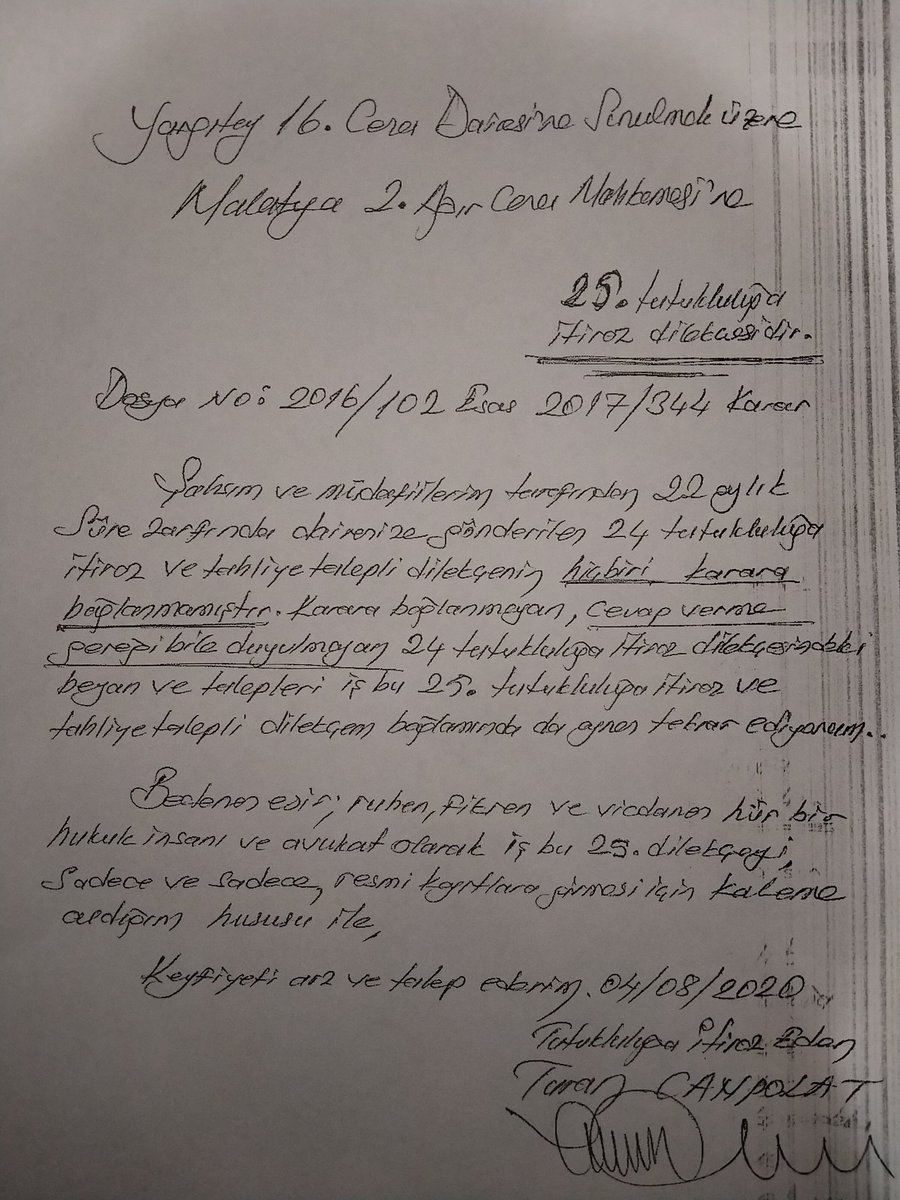 Yargıtay 16. Ceza Dairesi'ne Sunulmak üzere
Malatya 2. Ağır Ceza Mahkemesi'ne
25. tutukluluğa
itiraz dilekçesidir.
Dosya No: 2016/102 Esas 2017/344 Karar
Şahsım ve müdafiilerim tarafından 22 aylık
Süre zarfında dairenize gönderilen 24 tutukluluğa
itiraz ve tahliye talepli dilekçenin hiçbiri karara
bağlanmamıştır. Karara bağlanmayan, cevap verme
gereği bile duyulmayan 24 tutukluluğa itiraz dilekçesindeki
beyan ve talepleri iş bu 25. tutukluluğa itiraz ve
tahliye talepli dilekçem bağlamında da aynen tekrar ediyorum..
Bedenen esir; ruhen, fikren ve vicdanen hür bir
hukuk insanı ve avukat olarak iş bu 25. dilekçeyi,
Sadece ve sadece, resmi kayıtlara girmesi için kaleme
aldığım hususu ile,
Keyfiyeti arz ve talep ederim. 04/08/2020
Tutukluluğa İtiraz Eden
Turan CANPOLAT